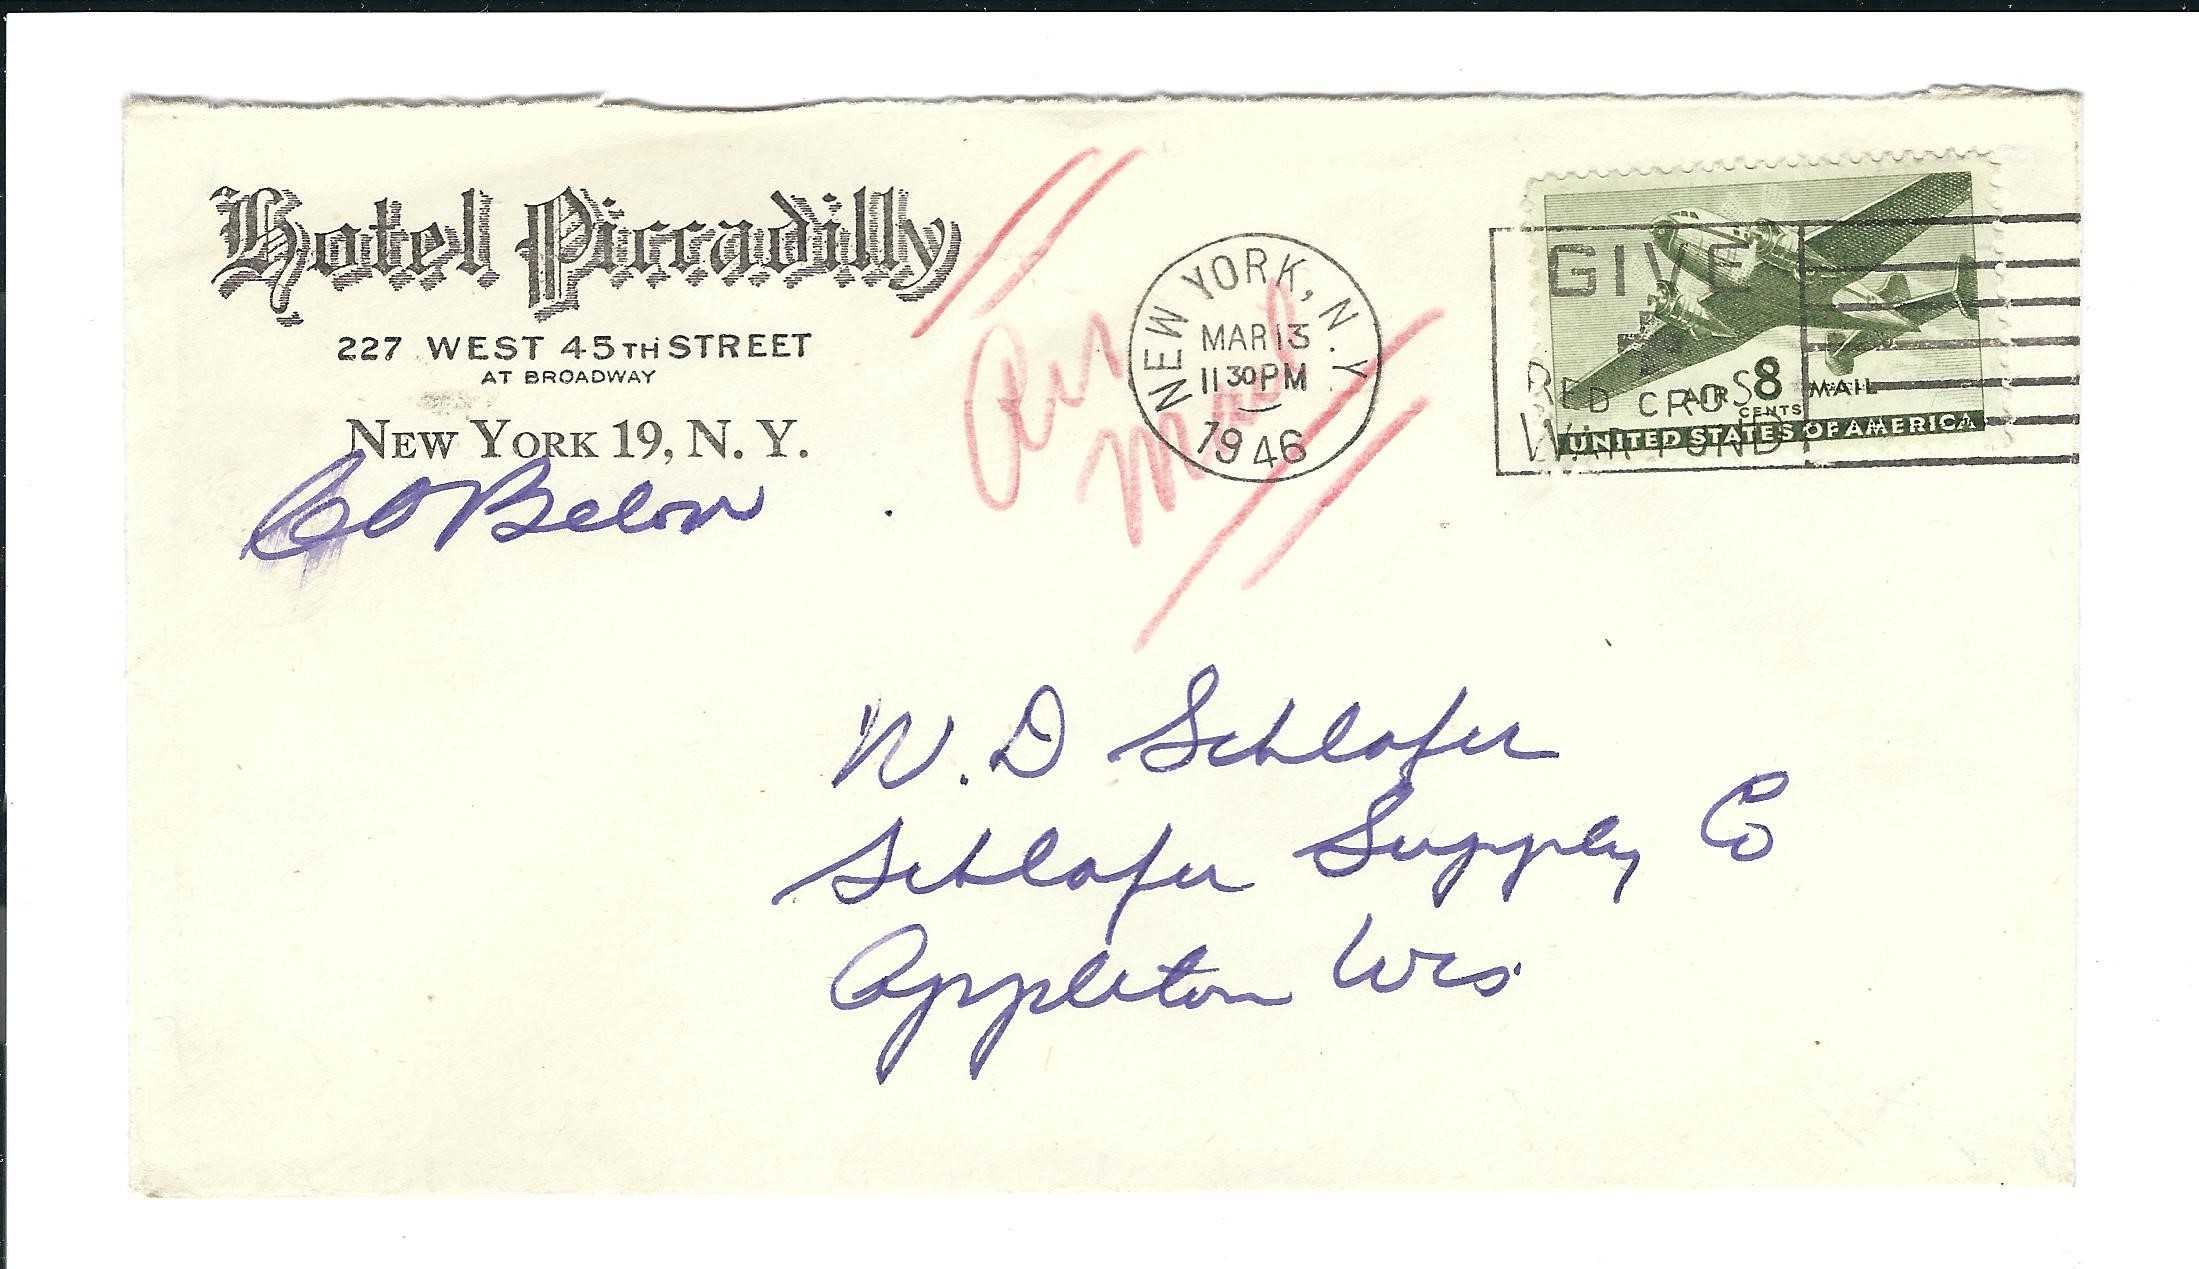 Hotel Piccadilly
227 WEST 45TH STREET
AT BROADWAY
NEW YORK 19, N. Y.
Belon
Air
Mail
NEW YORK, N.Y.
MAR 13
11 30 PM
1946
GIVE
RED CROSS
WAR FUND
AIR 8 MAIL
CENTS
UNITED STATES OF AMERICA
W. D Schlafer
Schlafer Supply Co
Appleton Wis